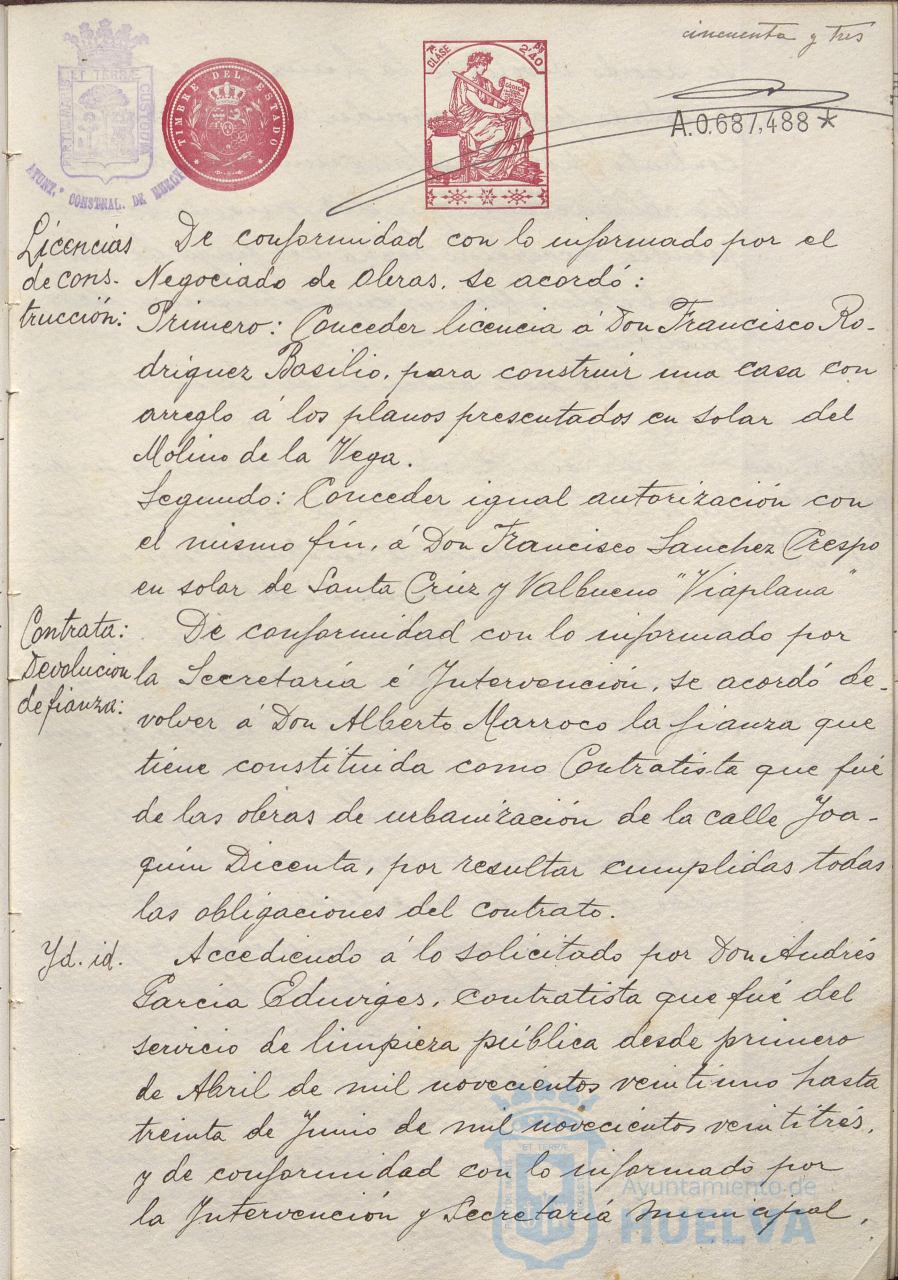 cincuenta y tres
ET TERRÆ CUSTODIUM
AYUNT.º CONSTNAL. DE HUELVA
TIMBRE DEL ESTADO
7ª CLASE
2'40
A.0.687,488*
Licencias
de cons-
trucción:
De conformidad con lo informado por el
Negociado de Obras, se acordó:
Primero: Conceder licencia á Don Francisco Ro-
driguez Basilio, para construir una casa con
arreglo á los planos presentados en solar del
Molino de la Vega.
Segundo: Conceder igual autorización con
el mismo fín, á Don Francisco Sanchez Crespo
en solar de Santa Crúz y Valbueno "Viaplana"
Contrata:
Devolucion
de fianza:
De conformidad con lo informado por
la Secretaría é Intervención, se acordó de-
volver á Don Alberto Marroco la fianza que
tiene constituida como Contratista que fué
de las obras de urbanización de la calle Joa-
quin Dicenta, por resultar cumplidas todas
las obligaciones del contrato.
Yd. id.
Accediendo á lo solicitado por Don Andrés
Garcia Eduviges, contratista que fué del
servicio de limpieza pública desde primero
de Abril de mil novecientos veintiuno hasta
treinta de Junio de mil novecientos veintitrés,
y de conformidad con lo informado por
la Intervención y Secretaría municipal,
ET TERRÆ
Ayuntamiento de
HUELVA